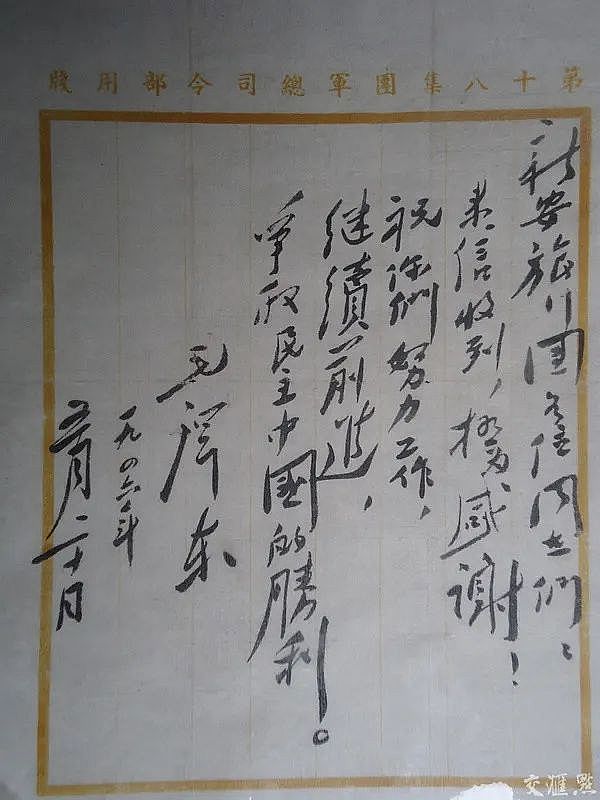 第十八集團軍總司令部用牋
新安旅行团各位同志們：
来信收到，極为感謝！
祝你們努力工作，
继續前進，
爭取民主中國的勝利。
毛澤东
一九四六年
五月二十日
交匯點